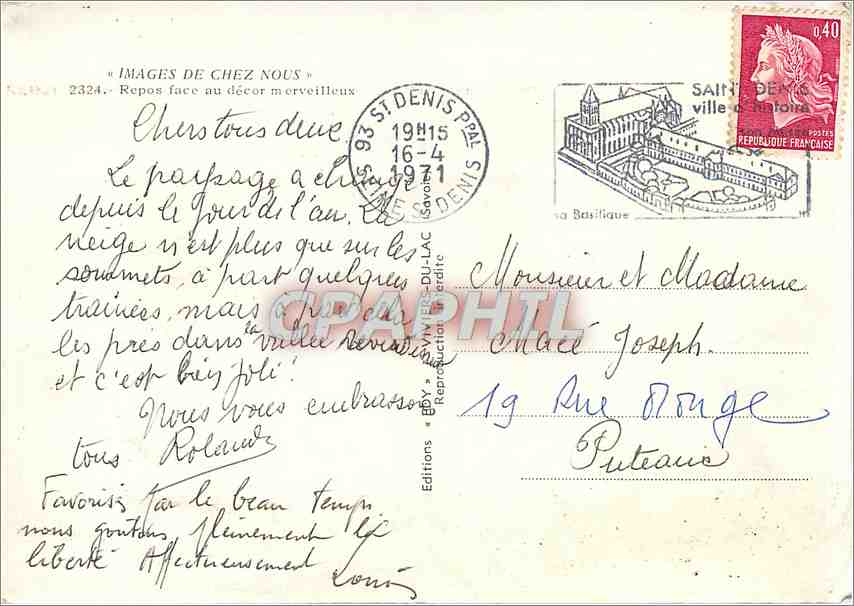 « IMAGES DE CHEZ NOUS »
2324. - Repos face au décor merveilleux
Chers tous deux
Le paysage a changé
depuis le jour de l'an. La
neige n'est plus que sur les
sommets, à part quelques
trainées, mais à part cela
les près dans la vallée
et c'est très joli!
Nous vous embrassons
tous Rolande
Favorisés par le beau temps
nous goutons pleinement la
liberté Affectueusement
Louis
93 ST DENIS PPAL
19H15
16-4
1971
SEINE ST DENIS
SAINT DENIS
ville d'histoire
son musée
sa Basilique
0,40
POSTES
REPUBLIQUE FRANÇAISE
Editions « EDY » VIVIERS-DU-LAC (Savoie)
Reproduction interdite
CPAPHIL
Monsieur et Madame
Macé Joseph.
19 Rue Monge
Puteaux